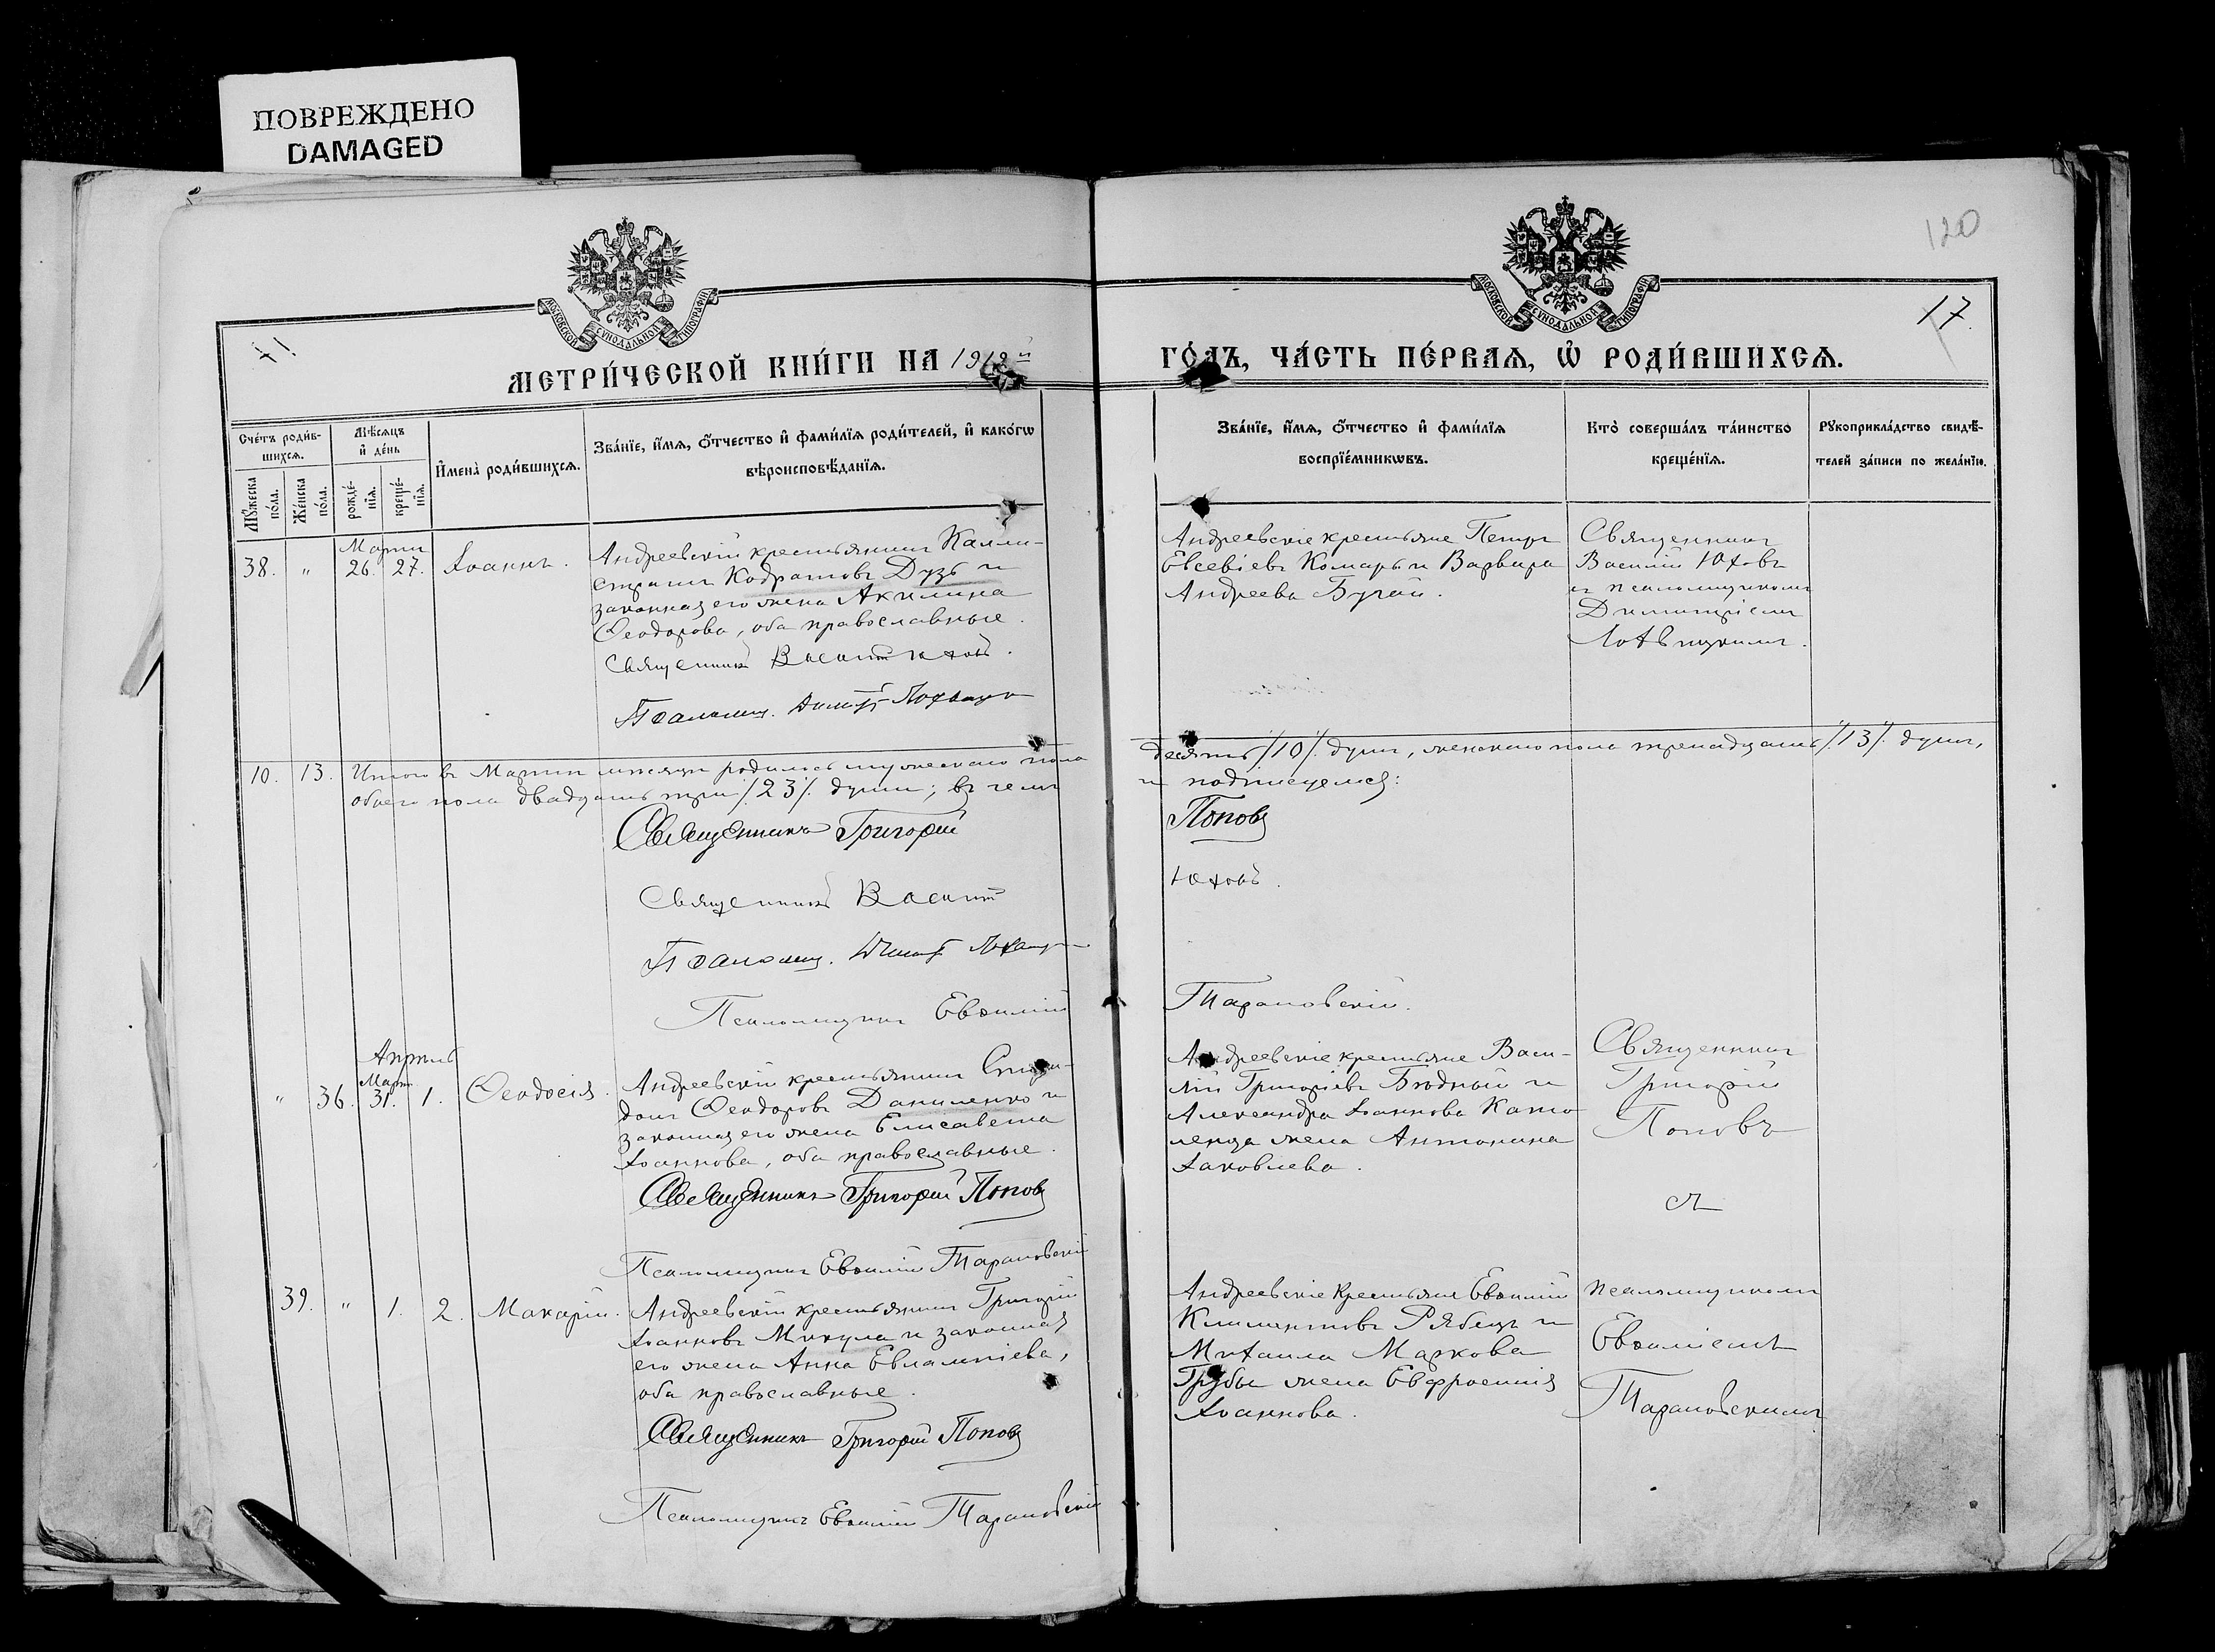 ПОВРЕЖДЕНО
DAMAGED
120
МОСКОВСКОЙ СѴНОДАЛЬНОЙ ТИПОГРАФІИ
МОСКОВСКОЙ СѴНОДАЛЬНОЙ ТИПОГРАФІИ
17.
МЕТРИ́ЧЕСКОЙ КНИ́ГИ НА 1912 й
ГО́ДЪ, ЧА́СТЬ ПЕ́РВАЯ, Ѡ҆ РОДИ́ВШИХСЯ.
Сче́тъ роди́в-
шихся.
Мꙋ́жеска по́ла.
Же́нска по́ла.
Мѣ́сяцъ и҆ де́нь
рожде́-нїя.
креще́-нїя.
И҆мена̀ роди́вшихся.
Зва́нїе, и҆́мя, ѻ҆́тчество и҆ фами́лїя роди́телей, и҆ како́гѡ
вѣроисповѣ́данїя.
Зва́нїе, и҆́мя, ѻ҆́тчество и҆ фами́лїя
воспрїе́мникѡвъ.
Кто̀ соверша́лъ та́инство
креще́нїя.
Рꙋкоприкла́дство свидѣ́-
телей за́писи по жела́нїю.
Мартъ
38. " 26. 27. Іоаннъ.
Андреевскій крестьянинъ Калли-
стратъ Кодратовъ Дузь и
законная его жена Акилина
Ѳеодорова, оба православные.
Священникъ Василій Юховъ.
Псаломщ. Димитрій
Андреевскіе крестьяне Петръ
Евсевіевъ Комарь и Варвара
Андреева Бугай.
Священникъ
Василій Юховъ
съ псаломщикомъ
Димитріемъ
10. 13. Итого въ Мартѣ мѣсяцѣ родилось мужескаго пола
десять /10/ душъ, женскаго пола тринадцать /13/ душъ,
обоего пола двадцать три /23/ души; въ чемъ
и подписуемся:
Священникъ Григорій
Поповъ
Священникъ Василій
Юховъ.
Псаломщ. Димитрій
Псаломщикъ Евѳимій
Тарановскій.
Апрѣль
Мартъ
" 36. 31. 1. Ѳеодосія.
Андреевскій крестьянинъ Спири-
донъ Ѳеодоровъ Даниленко и
законная его жена Елисавета
Іоаннова, оба православные.
Священникъ Григорій Поповъ
Псаломщикъ Евѳимій Тарановскій
Андреевскіе крестьяне Васи-
лій Григоріевъ Бѣдный и
Александра Іоаннова
жена Антонина
Іаковлева.
Священникъ
Григорій
Поповъ
съ
39. " 1. 2. Макарій.
Андреевскій крестьянинъ Григорій
Іоанновъ Микула и законная
его жена Анна Евлампіева,
оба православные.
Священникъ Григорій Поповъ
Псаломщикъ Евѳимій Тарановскій
Андреевскіе крестьяне Евѳимій
Климентовъ Рябецъ и
Михаила Маркова
Грубы жена Евфросинія
Іоаннова.
псаломщикомъ
Евѳиміемъ
Тарановскимъ